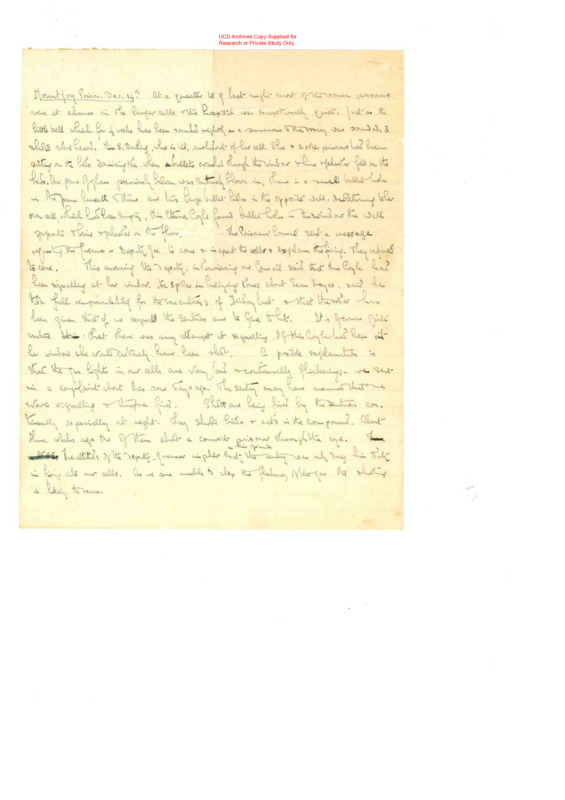 UCD Archives Copy Supplied for
Research or Private Study Only
Mountjoy Prison. Dec. 14th. At a quarter to 9 last night most of the women prisoners
were at chance in the larger cells & the hospital was exceptionally quiet. Just as the
little bell which for 4 weeks has been rounded nightly as a summons to the rosary was sounded, 3
shots were heard. Miss S. Darling, who is ill, was out of her cell. She & some prisoners had been
sitting on the
when bullets crashed through the window & some splinters fell on the
The pane of glass previously broken was entirely blown in, there is a small bullet hole
in the pane beneath & two large bullet holes in the opposite wall. On returning to her
own cell, which had been empty, Miss Eileen Coyle found bullet holes in the window & the wall
opposite & splinters on the floor. The Prisoners' Council sent a message
requesting the Governor or Deputy Gov. to come & inspect the cells & explain the firing. They refused
to come. This morning the Deputy, in interviewing our Council said that Miss Coyle had
been signalling at her window. He spoke in bullying tones about
said he
took full responsibility for the executions of Friday last & that the order has
been given that if we signal the sentries are to fire to hit. It is of course quite
untrue that there was any attempt at signalling. If Miss Coyle had been at
her window she would certainly have been shot. A possible explanation is
that the gas lights in our cells are very bad & continually flickering. - we sent
in a complaint about this some days ago. The sentry may have imagined that we
were signalling & therefore fired. Shots are being fired by the sentries con-
tinually especially at night. They shoot birds & cats in the compound. About
three weeks ago one of them shot a convict prisoner through the eye.
The attitude of the Deputy-Governor implies that in his opinion the sentry was only doing his duty
in firing into our cells. As we are unable to stop the flickering of the gas the shooting
is likely to recur.